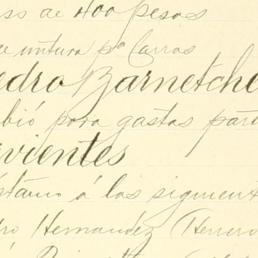 de 400 pesos
untura pa Carros
edro Barnetche
bió para gastos part
vientes
stamo á los siguient
dro Hernandez Herrero